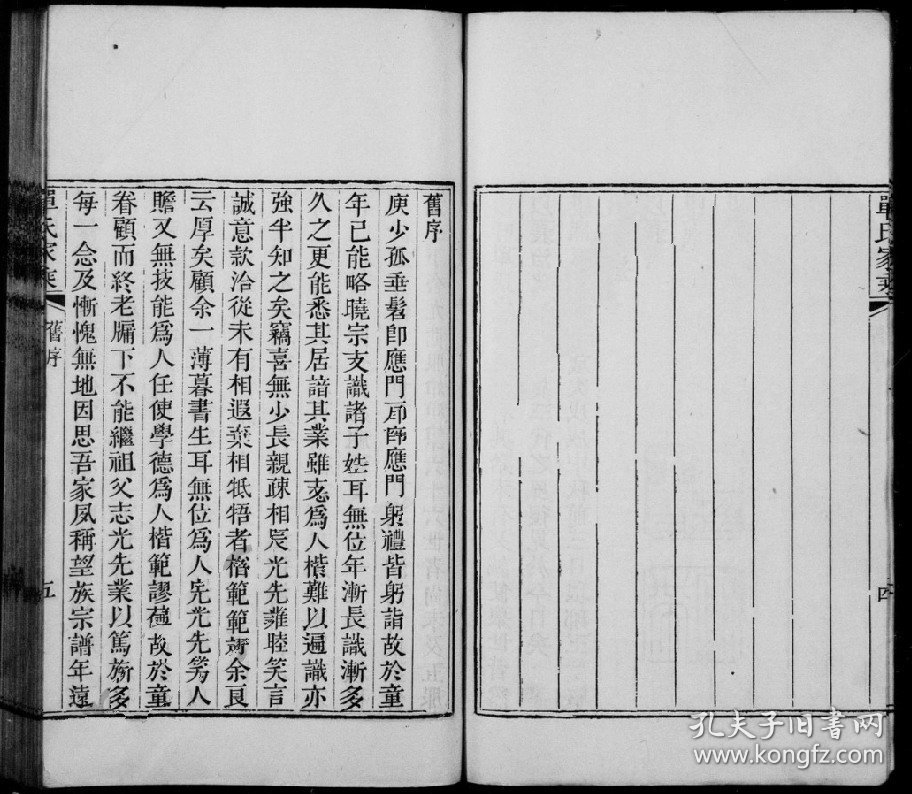 舊序
庚少孤垂髫卽應門
應門躬禮皆躬詣故於童
年已能略曉宗支識諸子姓耳無位年漸長識漸多
久之更能悉其居諳其業雖
爲人楷難以遍識亦
強半知之矣竊喜無少長親疎相
光先雜睦笑言
誠意款洽從未有相遐棄相牴牾者
範範
余良
云厚矣顧余一薄暮書生耳無位爲人
光先
人
贍又無技能爲人任使學德爲人楷範謬
故於童
眷顧而終老牖下不能繼祖父志光先業以篤
多
每一念及慚愧無地因思吾家夙稱望族宗譜年遠
單氏家乘
舊序
五
單氏家乘
四
孔夫子旧书网
www.kongfz.com